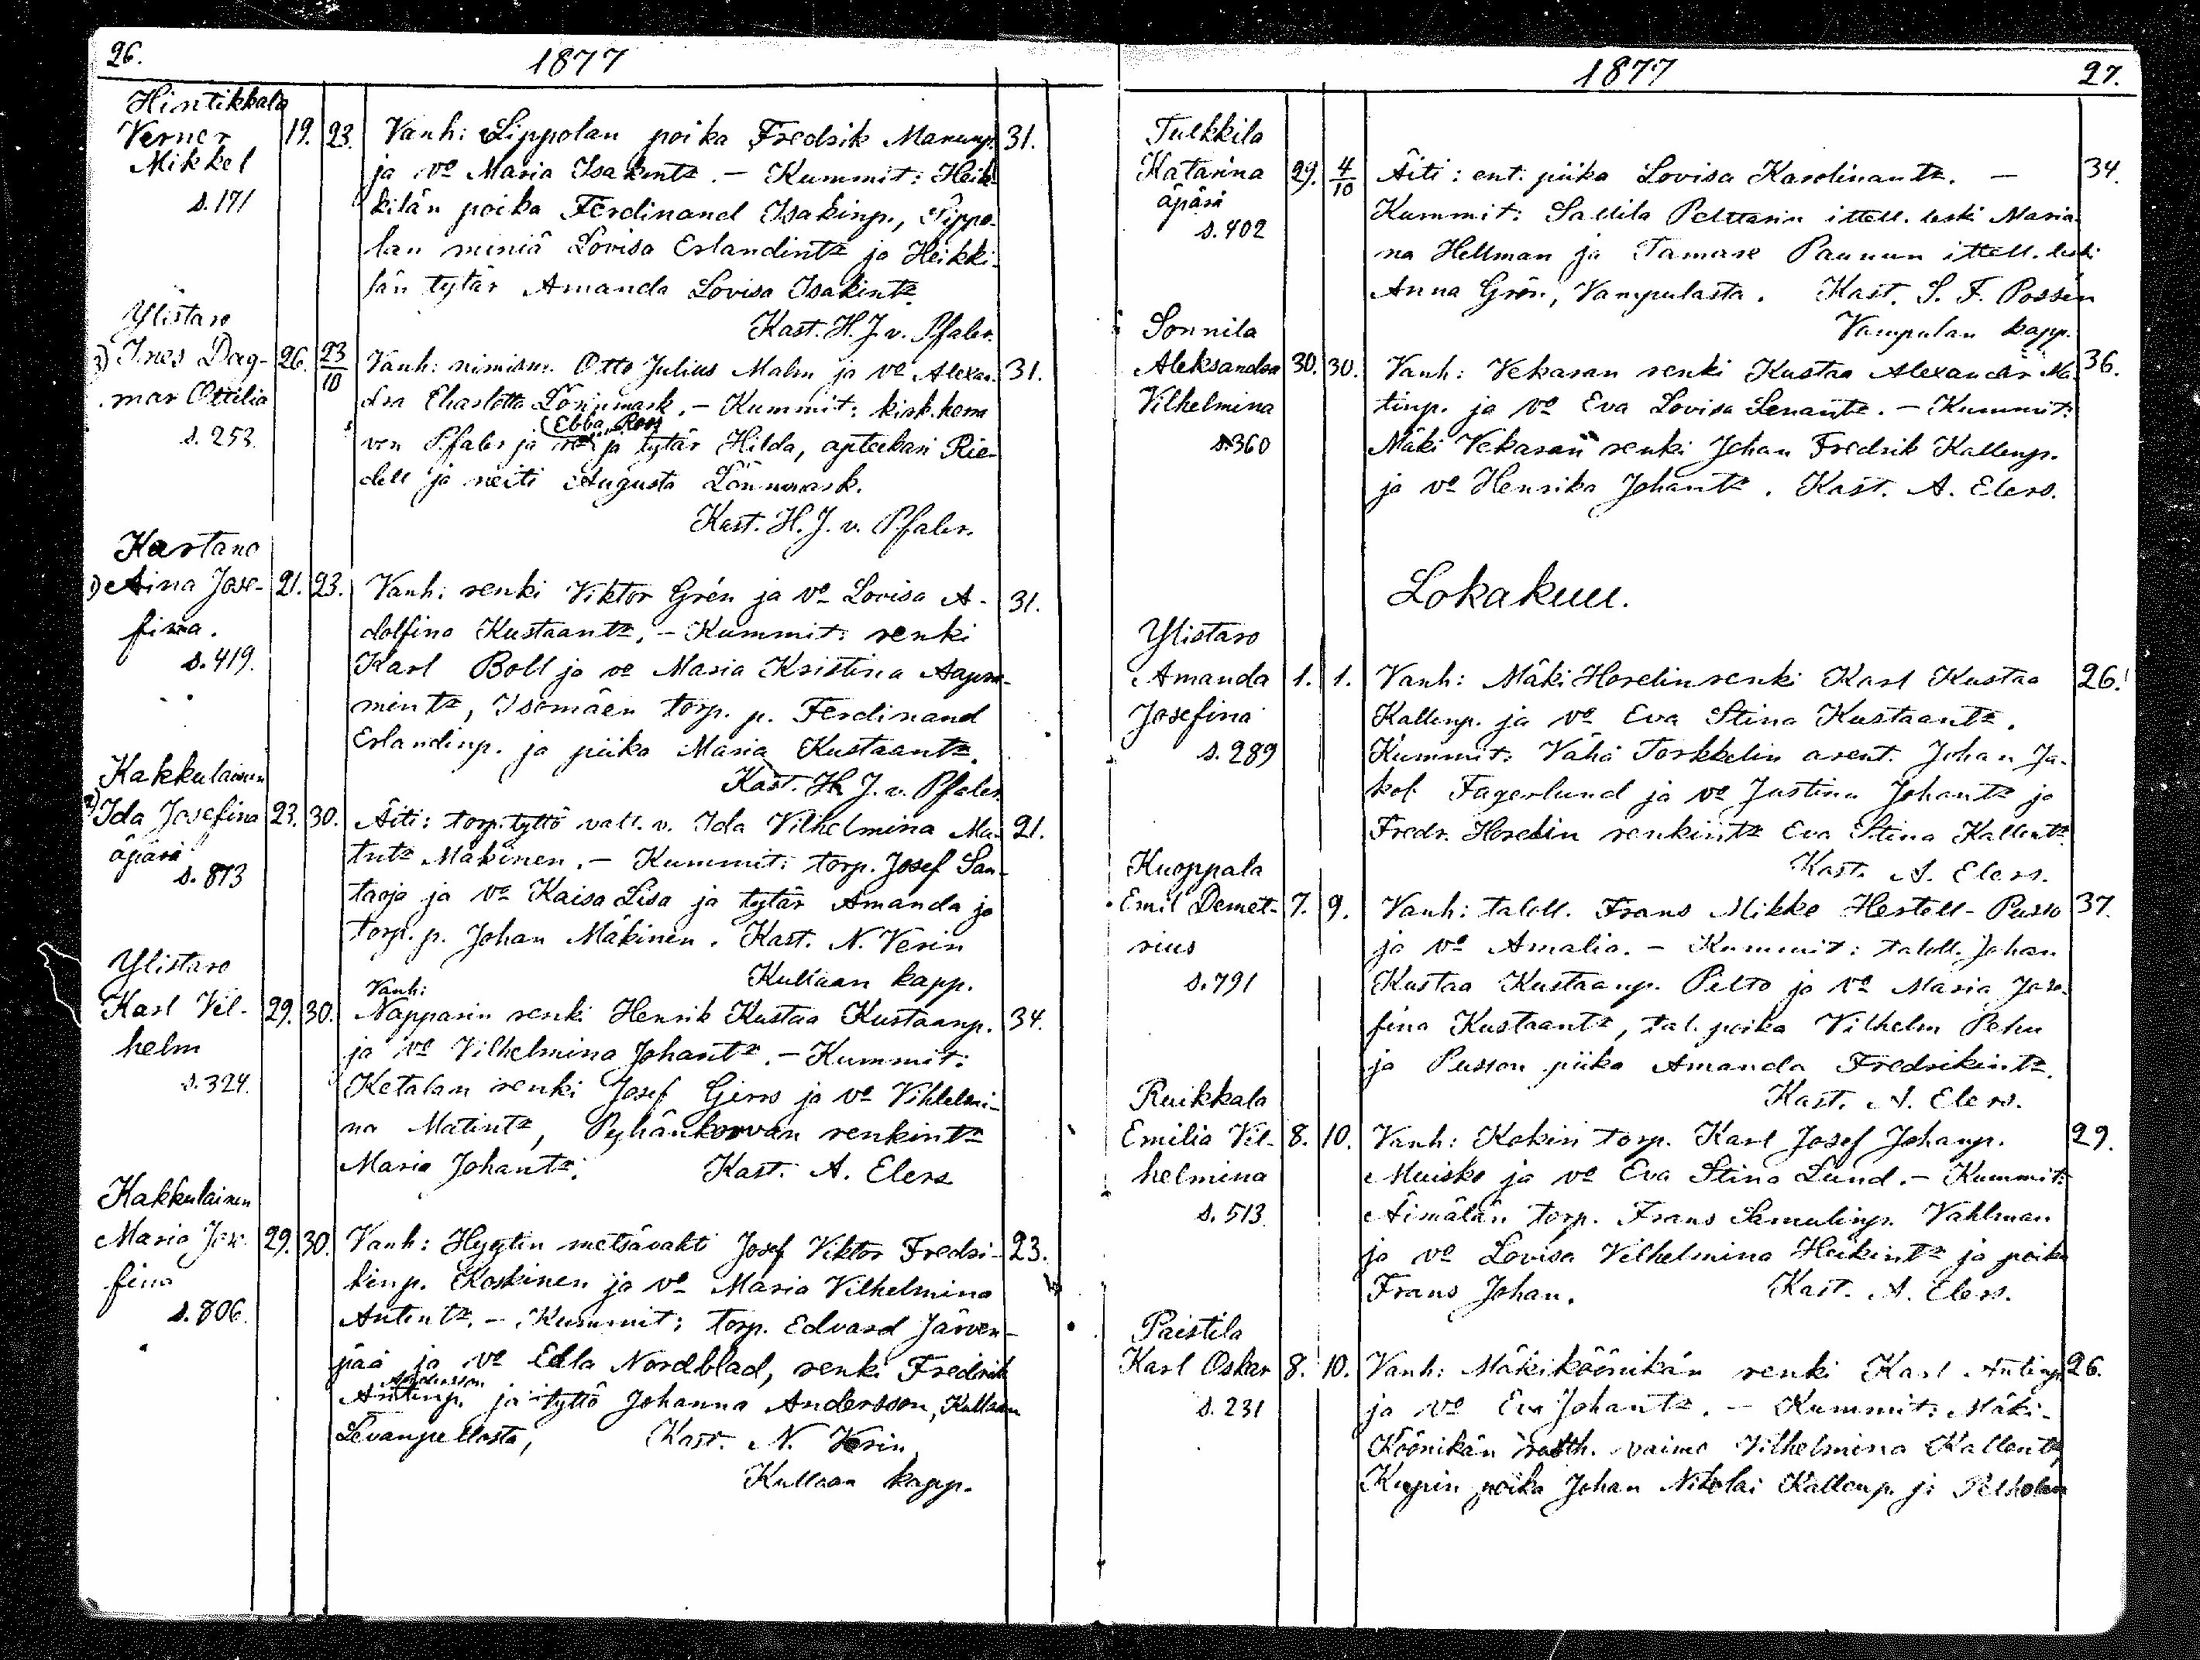 26.
1877
Hintikkala
Verner 19. 23. Vanh: Lippolan poika Fredrik Manunp. 31.
Mikkel ja vo Maria Isakintr. – Kummit: Heik-
s. 171 kilän poika Ferdinand Isakinp., Sippo-
lan miniä Lovisa Erlandintr ja Heikki-
län tytär Amanda Lovisa Isakintr
Kast. H. J. v. Pfaler.
Ylistaro
3) Ines Dag- 26. 23/10 Vanh: nimism. Otto Julius Malm ja vo Alexan- 31.
mar Ottilia dra Charlotta Lönnmark. – Kummit: kirk.herra
(Ebba, Ross)
s. 253. von Pfaler ja ja tytär Hilda, apteekari Rie-
dell ja neiti Augusta Lönnmark.
Kast. H. J. v. Pfaler.
Kartano
1) Aina Jose- 21. 23. Vanh: renki Viktor Grén ja vo Lovisa A- 31.
fina. dolfina Kustaantr. – Kummit: renki
s. 419. Karl Boll ja vo Maria Kristina Aapra-
mintr, Isomäen torp. p. Ferdinand
Erlandinp. ja piika Maria Kustaantr.
Kast. H. J. v. Pfaler.
Kakkulainen
2) Ida Josefina 23. 30. Äiti: torp. tyttö vall. v. Ida Vilhelmina Ma- 21.
äpärä tintr Mäkinen. – Kummit: torp. Josef San-
s. 813 taoja ja vo Kaisa Lisa ja tytär Amanda ja
torp. p. Johan Mäkinen. Kast. N. Verin
Kullaan kapp.
Ylistaro
Vanh:
Karl Vil- 29. 30. Napparin renki Henrik Kustaa Kustaanp. 34.
helm ja vo Vilhelmina Johantr. – Kummit:
s. 324. Ketalan renki Josef Girrs ja vo Vihlelmi-
na Matintr, Pyhänkorvan renkintr
Maria Johantr. Kast. A. Elers
Kakkulainen
Maria Jose- 29. 30. Vanh: Hyytin metsävahti Josef Viktor Fredri- 23.
fina kinp. Koskinen ja vo Maria Vilhelmina
s. 806. Antintr. – Kummit: torp. Edvard Järven-
pää ja vo Edla Nordblad, renki Fredrik
Andersson
Antinp. ja tyttö Johanna Andersson, Kullaan
Levanpellosta, Kast. N. Verin
Kullaan kapp.
1877
27.
Tulkkila
Katarina 29. 4/10 Äiti: ent. piika Lovisa Karolinantr. – 34.
äpärä Kummit: Sallila Pelttarin ittell. leski Maria-
s. 402 na Hellman ja Tamare Paunun ittell. leski
Anna Grön, Vampulasta. Kast. S. F. Possén
Vampulan kapp.
Sonnila
Aleksandra 30. 30. Vanh: Vekaran renki Kustaa Alexander Ma- 36.
Vilhelmina tinp. ja vo Eva Lovisa Lenantr. – Kummit:
s. 360 Mäki Vekaran renki Johan Fredrik Kallenp.
ja vo Henrika Johantr. Kast. A. Elers.
Lokakuu.
Ylistaro
Amanda 1. 1. Vanh: Mäki Horelin renki Karl Kustaa 26.
Josefina Kallenp. ja vo Eva Stina Kustaantr.
s. 289 Kummit: Vähä Torkkelin arent. Johan Ja-
kob Fagerlund ja vo Justina Johantr ja
Fredr. Horelin renkintr Eva Stina Kallentr
Kast. A. Elers.
Kuoppala
Emil Demet- 7. 9. Vanh: taloll. Frans Mikko Hertell-Pusso 37.
rius ja vo Amalia. – Kummit: taloll. Johan
s. 791 Kustaa Kustaanp. Pelto ja vo Maria Jose-
fina Kustaantr, tal. poika Vilhelm Pehu
ja Pusson piika Amanda Fredrikintr.
Kast. A. Elers.
Ruikkala
Emilia Vil- 8. 10. Vanh: Kokin torp. Karl Josef Johanp. 29.
helmina Muisko ja vo Eva Stina Lund. – Kummit:
s. 513. Äimälän torp. Frans Samulinp. Vahlman
ja vo Lovisa Vilhelmina Heikintr ja poika
Frans Johan. Kast. A. Elers.
Paistila
Karl Oskar 8. 10. Vanh: Mäkiköönikän renki Karl Antinp. 26.
s. 231 ja vo Eva Johantr. – Kummit: Mäki-
Köönikän vaimo Vilhelmina Kallentr
Kupin poika Johan Nikolai Kallenp. ja Pelholan